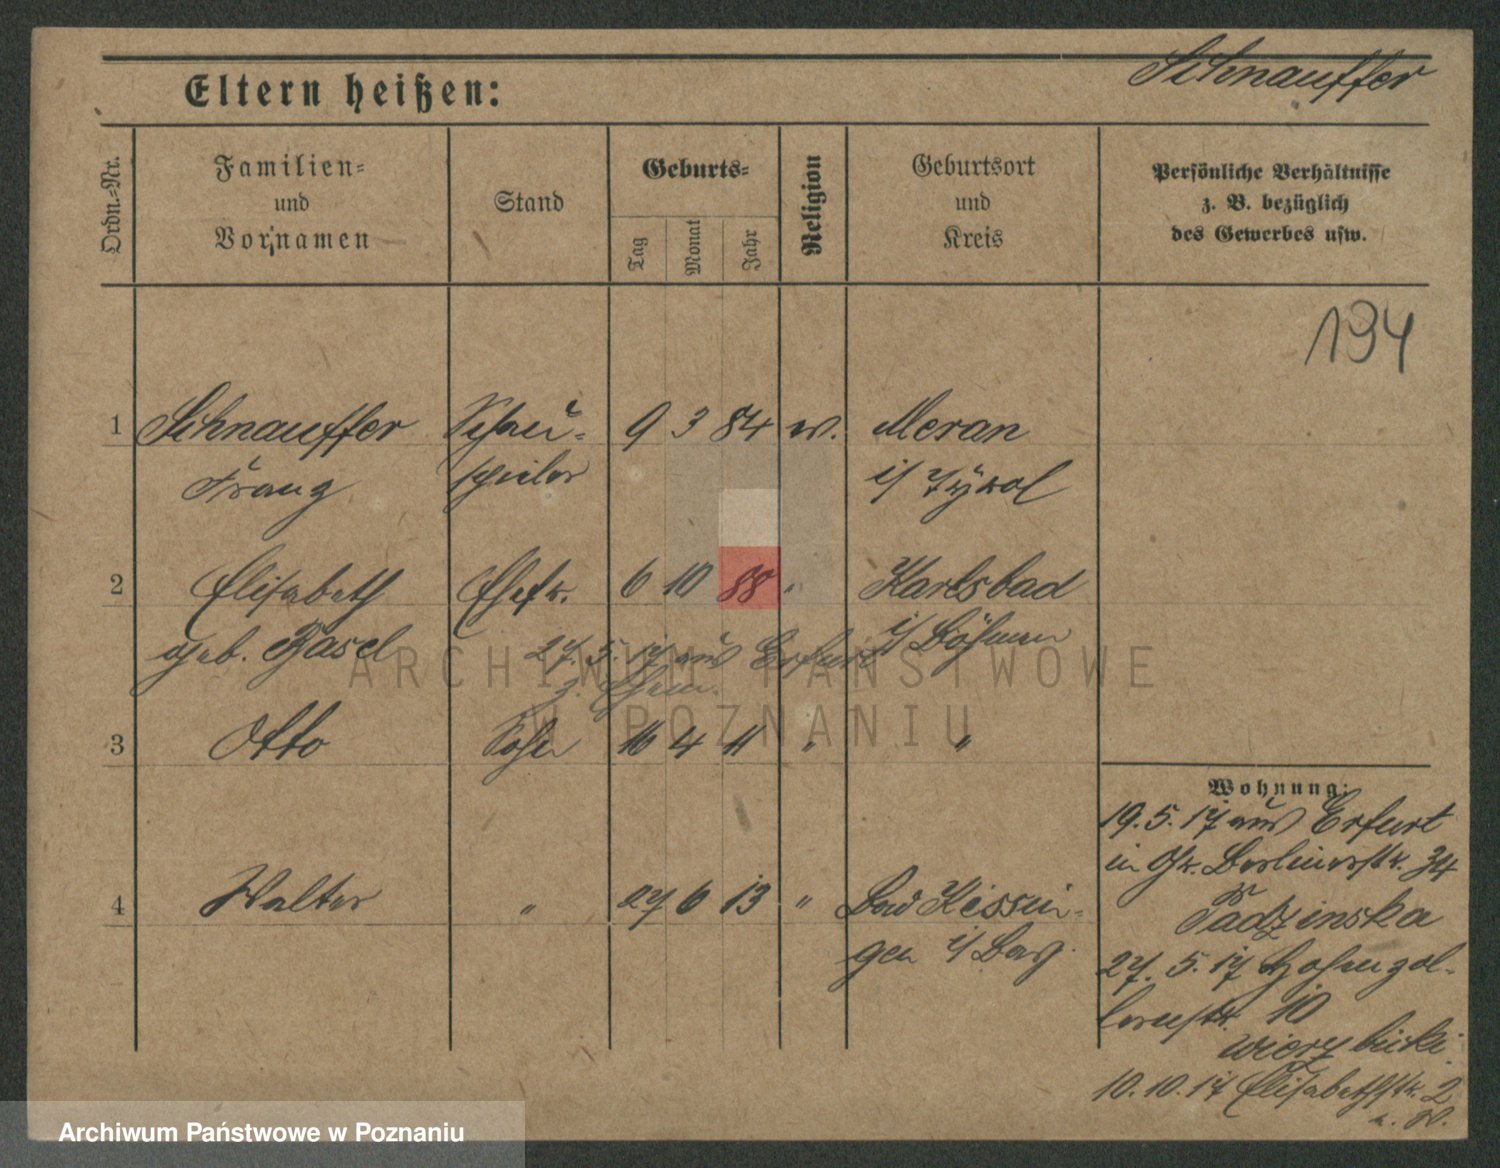 Schnauffer
Eltern heißen:
Ordn.-Nr.
Familien-
und
Vornamen
Stand
Geburts-
Tag
Monat
Jahr
Religion
Geburtsort
und
Kreis
Persönliche Verhältnisse
z. B. bezüglich
des Gewerbes usw.
194
1 Schnauffer Schau- 9 3 84 Meran
Franz spieler i/ Tyrol
2 Elisabeth Ehefr. 6 10 88 " Karlsbad
geb. Basel i/ Böhmen
27. 5. 17 aus Erfurt
3 Otto Sohn 16 4 11 " "
4 Walter " 27 6 13 " Bad Kissin-
gen i/ Bay.
Wohnung:
19. 5. 17 aus Erfurt
in Gr. Berlinerstr. 34
Tadzinska
27. 5. 17 Hohenzol-
lernstr. 10
10. 10. 17 Elisabethstr. 2
ARCHIWUM PAŃSTWOWE
W POZNANIU
Archiwum Państwowe w Poznaniu